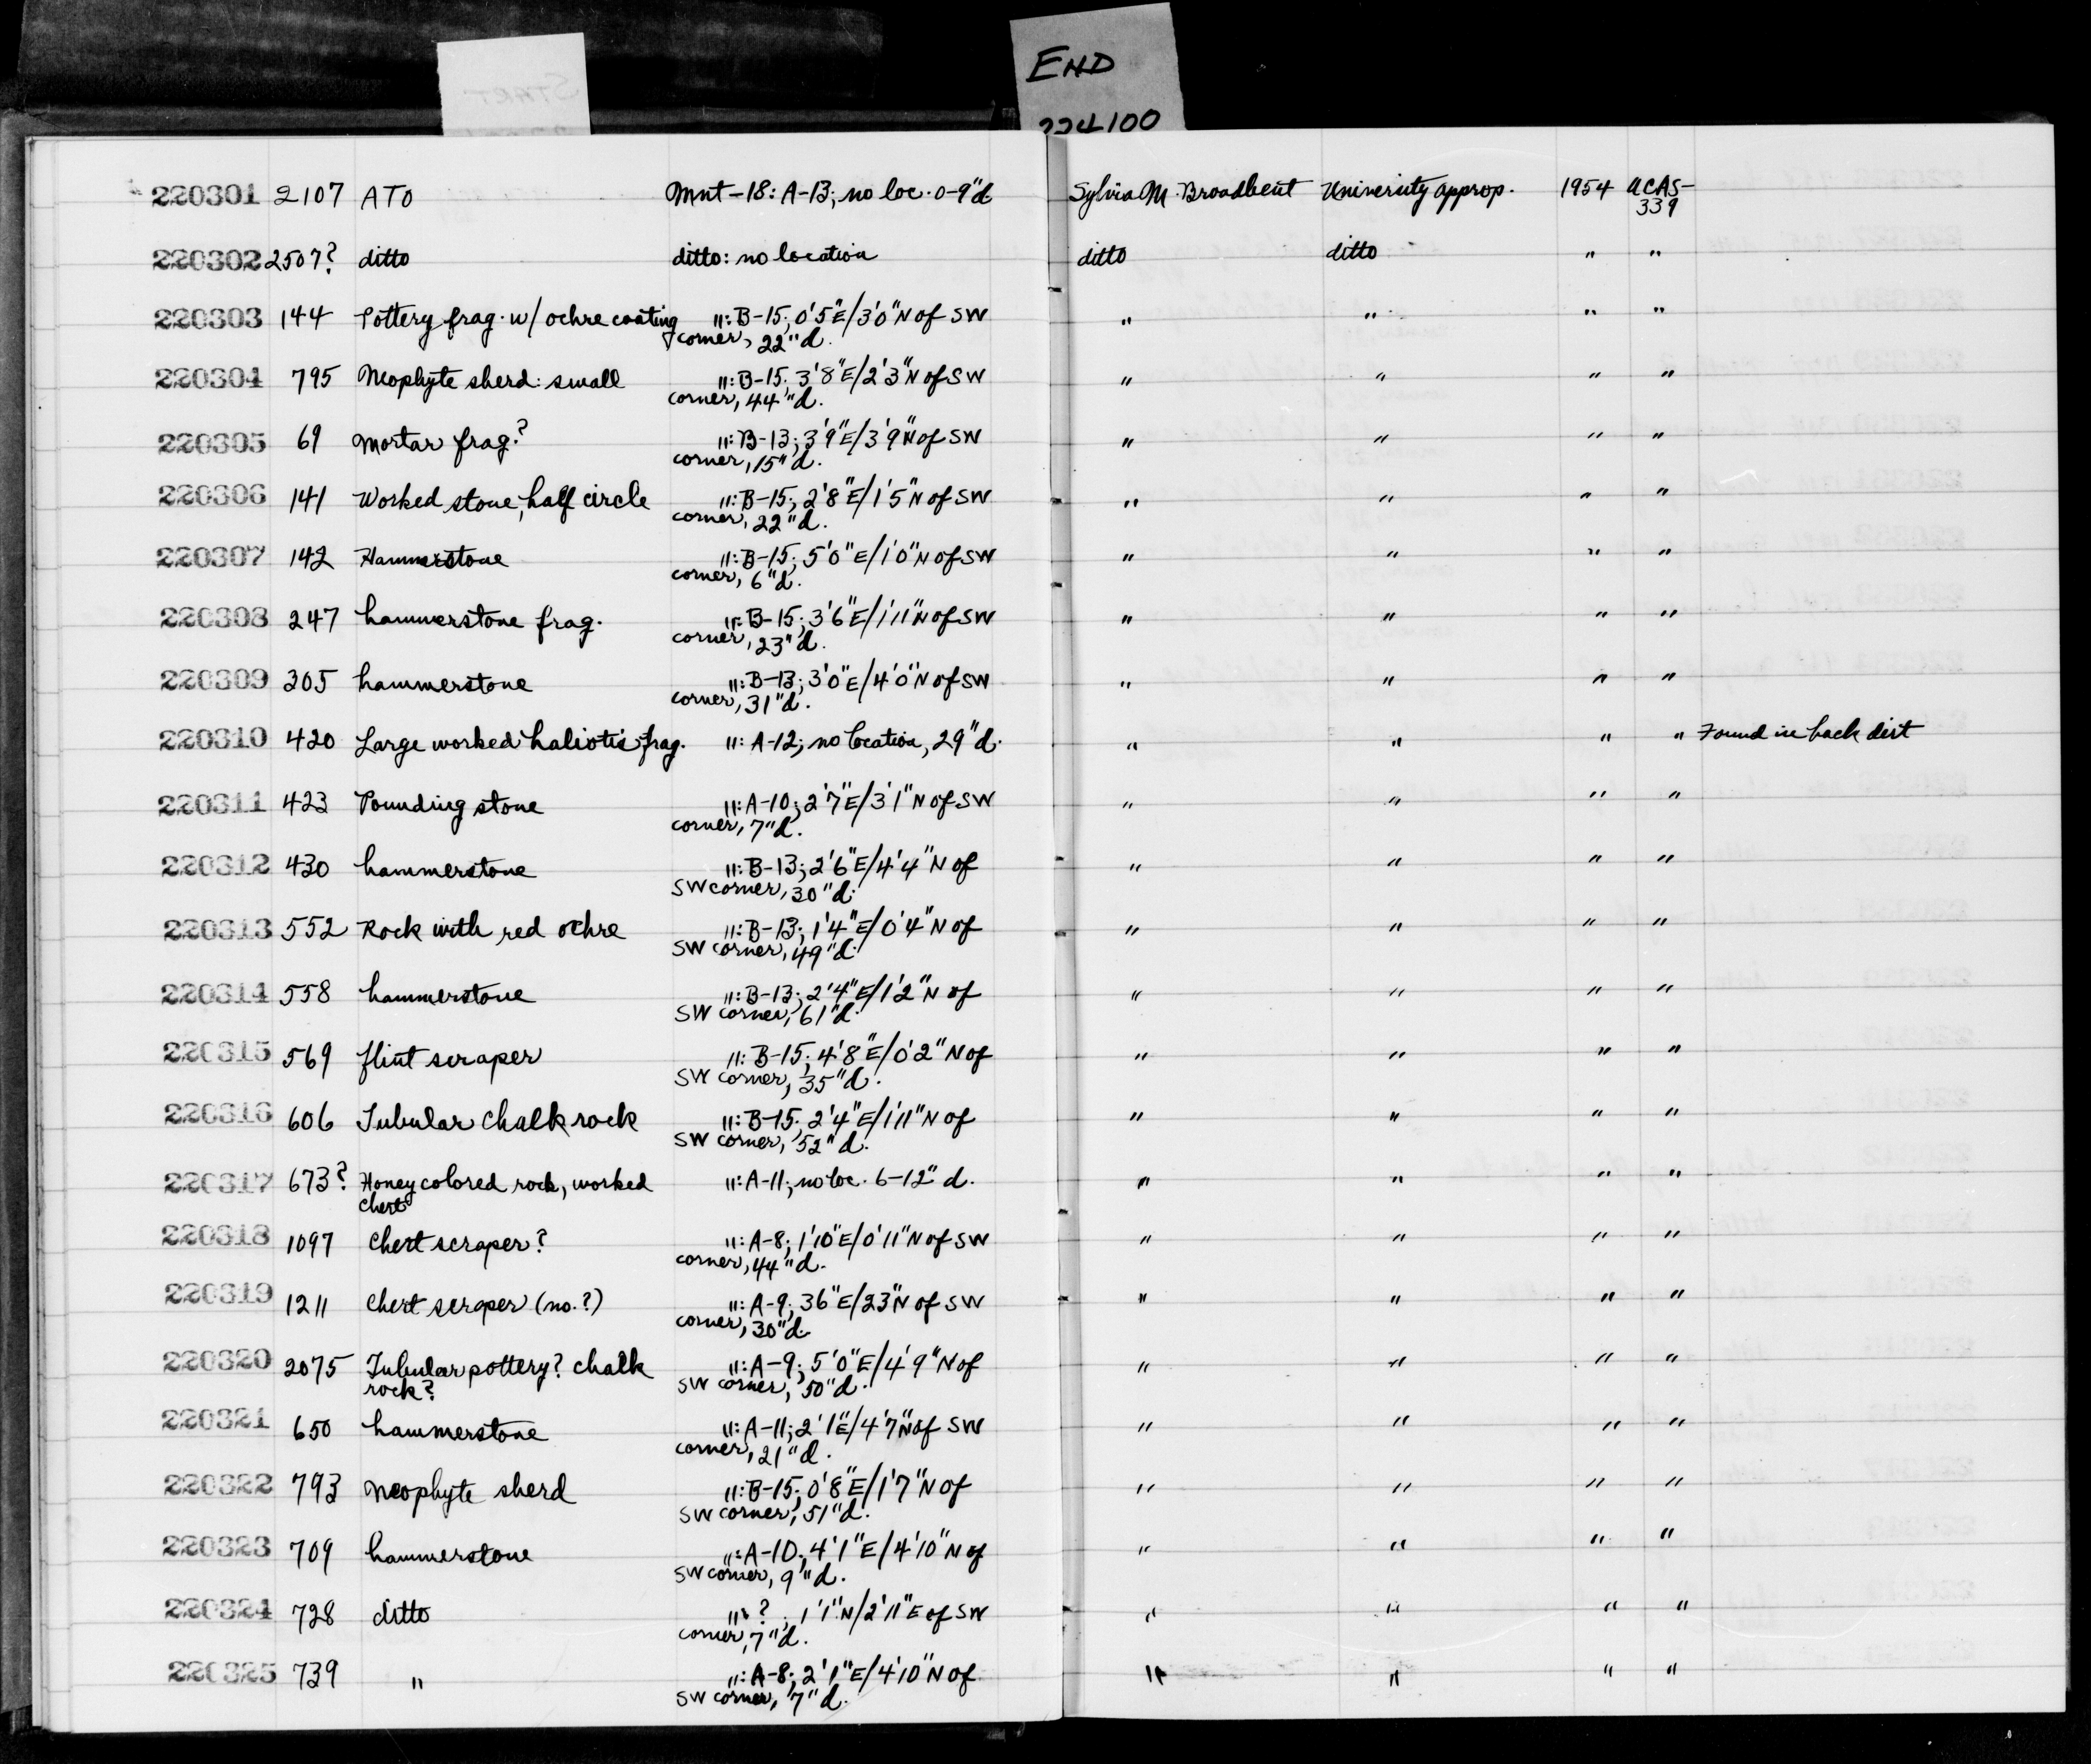 START
END
224100
220301 2107 ATO Mnt-18: A-13; no loc. 0-9"d Sylvia M. Broadbent University approp. 1954 UCAS-
339
220302 2507? ditto ditto: no location ditto ditto " "
220303 144 Pottery frag. w/ ochre coating ": B-15; 0'5"E/3'0"N of SW " " " "
corner, 22"d.
220304 795 Neophyte sherd: small ": B-15; 3'8"E/2'3"N of SW " " " "
corner, 44"d.
220305 69 Mortar frag.? ": B-13; 3'9"E/3'9"N of SW " " " "
corner, 15"d.
220306 141 Worked stone, half circle ": B-15; 2'8"E/1'5"N of SW " " " "
corner, 22"d.
220307 142 Hammerstone ": B-15; 5'0"E/1'0"N of SW " " " "
corner, 6"d.
220308 247 hammerstone frag. ": B-15; 3'6"E/1'11"N of SW " " " "
corner, 23"d.
220309 305 hammerstone ": B-13; 3'0"E/4'0"N of SW " " " "
corner, 31"d.
220310 420 Large worked haliotis frag. ": A-12; no location, 29"d. " " " " Found in back dirt
220311 423 Pounding stone ": A-10; 2'7"E/3'1"N of SW " " " "
corner, 7"d.
220312 430 hammerstone ": B-13; 2'6"E/4'4"N of " " " "
SW corner, 30"d.
220313 552 Rock with red ochre ": B-13; 1'4"E/0'4"N of " " " "
SW corner, 49"d.
220314 558 hammerstone ": B-13; 2'4"E/1'2"N of " " " "
SW corner, 61"d.
220315 569 flint scraper ": B-15; 4'8"E/0'2"N of " " " "
SW corner, 35"d.
220316 606 Tubular chalk rock ": B-15; 2'4"E/1'11"N of " " " "
SW corner, 52"d.
220317 673? Honey colored rock, worked ": A-11; no loc. 6-12"d. " " " "
chert
220318 1097 Chert scraper? ": A-8; 1'10"E/0'11"N of SW " " " "
corner, 44"d.
220319 1211 Chert scraper (no.?) ": A-9; 36"E/23"N of SW " " " "
corner, 30"d.
220320 2075 Tubular pottery? chalk ": A-9; 5'0"E/4'9"N of " " " "
rock? SW corner, 50"d.
220321 650 hammerstone ": A-11; 2'1"E/4'7"N of SW " " " "
corner, 21"d.
220322 793 Neophyte sherd ": B-15; 0'8"E/1'7"N of " " " "
SW corner, 51"d.
220323 709 hammerstone ": A-10; 4'1"E/4'10"N of " " " "
SW corner, 9"d.
220324 728 ditto ": ?; 1'1"N/2'11"E of SW " " " "
corner, 7"d.
220325 739 " ": A-8; 2'1"E/4'10"N of " " " "
SW corner, 7"d.